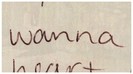 wanna
heart